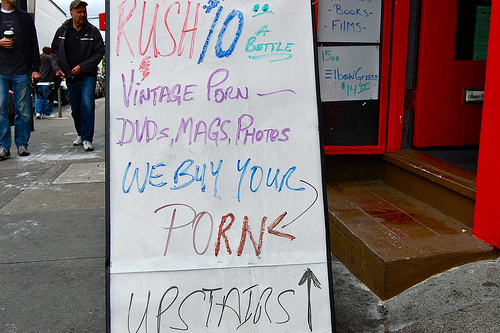 RUSH $10
A
BOTTLE
VINTAGE PORN —
DVDs, MAGS, PHOTOS
WE BUY YOUR
PORN
UPSTAIRS
-BOOKS-
-FILMS-
15oz
ElbowGrease
$14